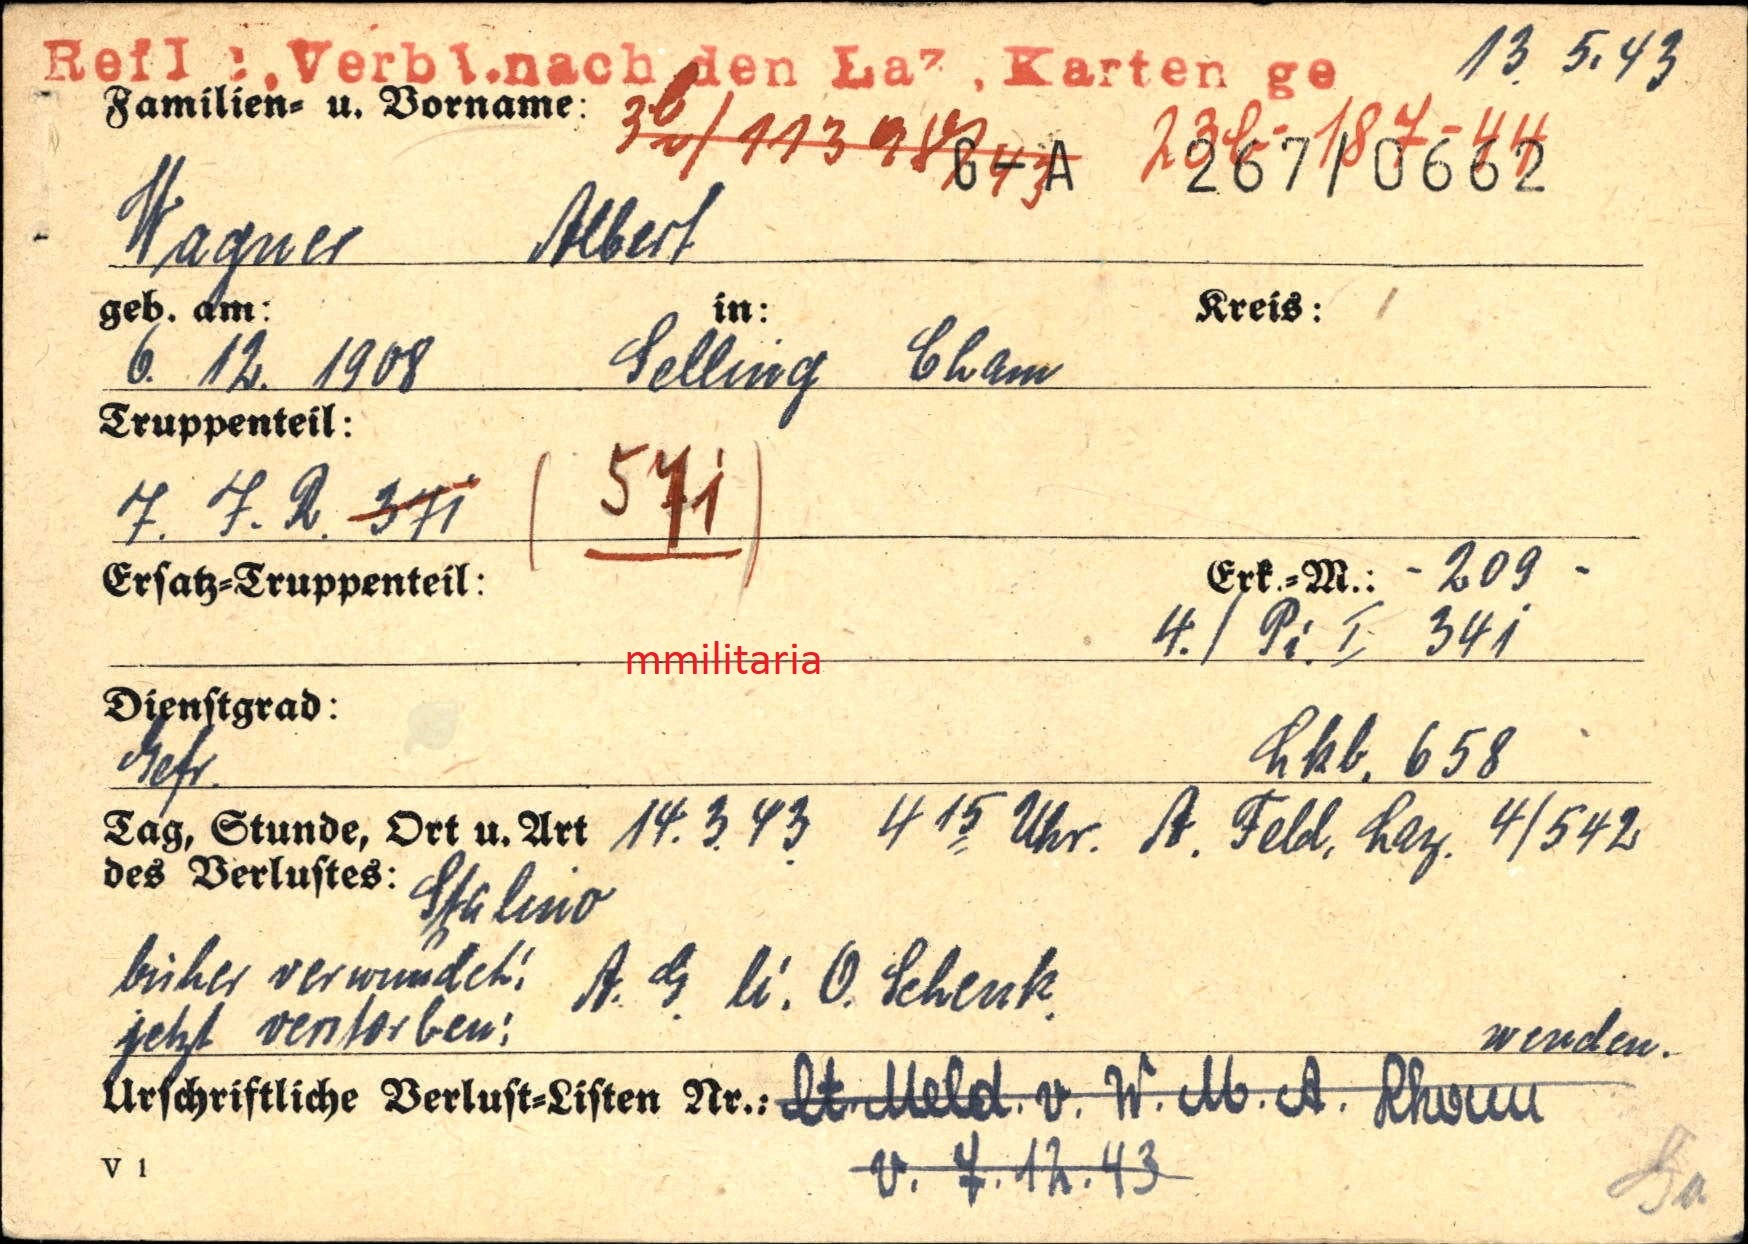 Refl :.Verbl.nach den Laz ,Karten ge 13. 5. 43
Familien- u. Vorname:
3b/ 113 G-A 267/0662
Wagner Albert
geb. am: in: Kreis:
6. 12. 1908 Selling Cham
Truppenteil:
7. J. R. 371 (571)
Ersatz-Truppenteil: Erk.-M.: - 209 -
4./ Pi. I 341
mmilitaria
Dienstgrad:
Gefr. Lkb. 658
Tag, Stunde, Ort u. Art 14. 3. 43 4 15 Uhr. A. Feld. Laz. 4/542
des Verlustes: Stalino
bisher verwundet: A. G. li. O. Schenk.
jetzt verstorben: wenden.
Urschriftliche Verlust-Listen Nr.: lt. Meld. v. W. M. A.
v. 7. 12. 43
V 1